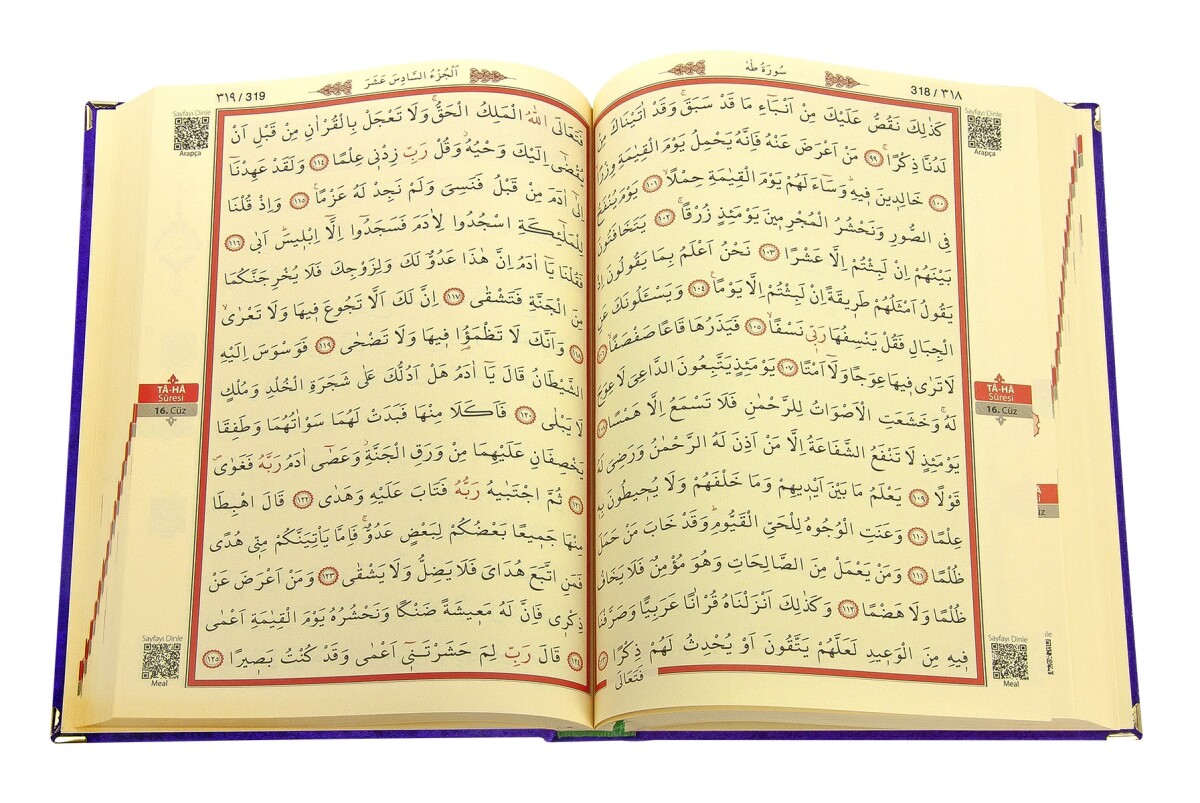 318 / ٣١٨
سُورَةُ طٰهٰ
كَذٰلِكَ نَقُصُّ عَلَيْكَ مِنْ اَنْبَٓاءِ مَا قَدْ سَبَقَۚ وَقَدْ اٰتَيْنَاكَ مِنْ
لَدُنَّا ذِكْرًاۚ ﴿٩٩﴾ مَنْ اَعْرَضَ عَنْهُ فَاِنَّهُ يَحْمِلُ يَوْمَ الْقِيٰمَةِ وِزْرًاۙ
﴿١٠٠﴾ خَالِدِينَ فِيهِۜ وَسَٓاءَ لَهُمْ يَوْمَ الْقِيٰمَةِ حِمْلًاۙ ﴿١٠١﴾ يَوْمَ يُنْفَخُ
فِي الصُّورِ وَنَحْشُرُ الْمُجْرِمِينَ يَوْمَئِذٍ زُرْقًاۚ ﴿١٠٢﴾ يَتَخَافَتُونَ
بَيْنَهُمْ اِنْ لَبِثْتُمْ اِلَّا عَشْرًا ﴿١٠٣﴾ نَحْنُ اَعْلَمُ بِمَا يَقُولُونَ اِذْ
يَقُولُ اَمْثَلُهُمْ طَرِيقَةً اِنْ لَبِثْتُمْ اِلَّا يَوْمًاۚ ﴿١٠٤﴾ وَيَسْـَٔلُونَكَ عَنِ
الْجِبَالِ فَقُلْ يَنْسِفُهَا رَبِّي نَسْفًاۙ ﴿١٠٥﴾ فَيَذَرُهَا قَاعًا صَفْصَفًاۙ ﴿١٠٦﴾
لَا تَرٰى فِيهَا عِوَجًا وَلَٓا اَمْتًاۜ ﴿١٠٧﴾ يَوْمَئِذٍ يَتَّبِعُونَ الدَّاعِيَ لَا عِوَجَ
لَهُۚ وَخَشَعَتِ الْاَصْوَاتُ لِلرَّحْمٰنِ فَلَا تَسْمَعُ اِلَّا هَمْسًا ﴿١٠٨﴾
يَوْمَئِذٍ لَا تَنْفَعُ الشَّفَاعَةُ اِلَّا مَنْ اَذِنَ لَهُ الرَّحْمٰنُ وَرَضِيَ لَهُ
قَوْلًا ﴿١٠٩﴾ يَعْلَمُ مَا بَيْنَ اَيْدِيهِمْ وَمَا خَلْفَهُمْ وَلَا يُحِيطُونَ بِهِ
عِلْمًا ﴿١١٠﴾ وَعَنَتِ الْوُجُوهُ لِلْحَيِّ الْقَيُّومِۜ وَقَدْ خَابَ مَنْ حَمَلَ
ظُلْمًا ﴿١١١﴾ وَمَنْ يَعْمَلْ مِنَ الصَّالِحَاتِ وَهُوَ مُؤْمِنٌ فَلَا يَخَافُ
ظُلْمًا وَلَا هَضْمًا ﴿١١٢﴾ وَكَذٰلِكَ اَنْزَلْنَاهُ قُرْاٰنًا عَرَبِيًّا وَصَرَّفْنَا
فِيهِ مِنَ الْوَعِيدِ لَعَلَّهُمْ يَتَّقُونَ اَوْ يُحْدِثُ لَهُمْ ذِكْرًا ﴿١١٣﴾
فَتَعَالَى
Sayfayı Dinle
Arapça
TÂ-HÂ
Sûresi
16. Cüz
Sayfayı Dinle
Meal
اَلْجُزْءُ السَّادِسَ عَشَرَ
٣١٩ / 319
فَتَعَالَى اللّٰهُ الْمَلِكُ الْحَقُّۚ وَلَا تَعْجَلْ بِالْقُرْاٰنِ مِنْ قَبْلِ اَنْ
يُقْضٰٓى اِلَيْكَ وَحْيُهُۘ وَقُلْ رَبِّ زِدْنِي عِلْمًا ﴿١١٤﴾ وَلَقَدْ عَهِدْنَٓا
اِلٰٓى اٰدَمَ مِنْ قَبْلُ فَنَسِيَ وَلَمْ نَجِدْ لَهُ عَزْمًا۟ ﴿١١٥﴾ وَاِذْ قُلْنَا
لِلْمَلٰٓئِكَةِ اسْجُدُوا لِاٰدَمَ فَسَجَدُٓوا اِلَّٓا اِبْلِيسَۜ اَبٰى ﴿١١٦﴾
فَقُلْنَا يَٓا اٰدَمُ اِنَّ هٰذَا عَدُوٌّ لَكَ وَلِزَوْجِكَ فَلَا يُخْرِجَنَّكُمَا
مِنَ الْجَنَّةِ فَتَشْقٰى ﴿١١٧﴾ اِنَّ لَكَ اَلَّا تَجُوعَ فِيهَا وَلَا تَعْرٰىۙ
﴿١١٨﴾ وَاَنَّكَ لَا تَظْمَؤُ۬ا فِيهَا وَلَا تَضْحٰى ﴿١١٩﴾ فَوَسْوَسَ اِلَيْهِ
الشَّيْطَانُ قَالَ يَٓا اٰدَمُ هَلْ اَدُلُّكَ عَلٰى شَجَرَةِ الْخُلْدِ وَمُلْكٍ
لَا يَبْلٰى ﴿١٢٠﴾ فَاَكَلَا مِنْهَا فَبَدَتْ لَهُمَا سَوْاٰتُهُمَا وَطَفِقَا
يَخْصِفَانِ عَلَيْهِمَا مِنْ وَرَقِ الْجَنَّةِۘ وَعَصٰٓى اٰدَمُ رَبَّهُ فَغَوٰىۖ
﴿١٢١﴾ ثُمَّ اجْتَبٰيهُ رَبُّهُ فَتَابَ عَلَيْهِ وَهَدٰى ﴿١٢٢﴾ قَالَ اهْبِطَا
مِنْهَا جَمِيعًا بَعْضُكُمْ لِبَعْضٍ عَدُوٌّۚ فَاِمَّا يَأْتِيَنَّكُمْ مِنِّي هُدًى
فَمَنِ اتَّبَعَ هُدَايَ فَلَا يَضِلُّ وَلَا يَشْقٰى ﴿١٢٣﴾ وَمَنْ اَعْرَضَ عَنْ
ذِكْرِي فَاِنَّ لَهُ مَعِيشَةً ضَنْكًا وَنَحْشُرُهُ يَوْمَ الْقِيٰمَةِ اَعْمٰى
﴿١٢٤﴾ قَالَ رَبِّ لِمَ حَشَرْتَنِٓي اَعْمٰى وَقَدْ كُنْتُ بَصِيرًا ﴿١٢٥﴾
Sayfayı Dinle
Arapça
TÂ-HÂ
Sûresi
16. Cüz
Sayfayı Dinle
Meal